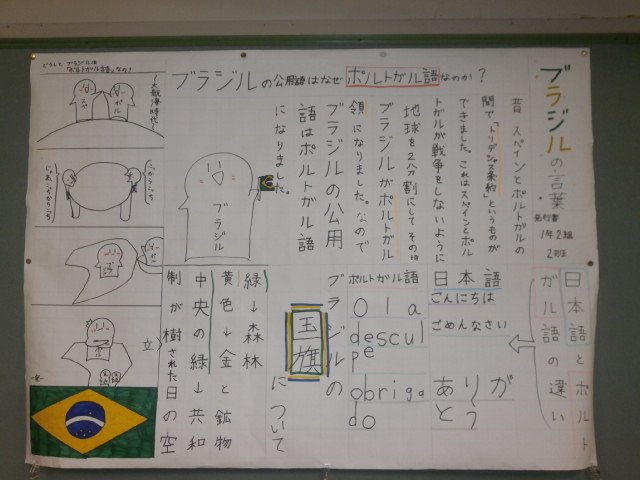 ブラジルの言葉
発行者
1年2組
2班
ブラジルの公用語はなぜポルトガル語なのか?
昔スペインとポルトガルの
間で「トリデシャス条約」というものが
できました。これはスペインとポル
トガルが戦争をしないように
地球を2分割にしてその時
ブラジルがポルトガル
領になりました。なので
ブラジルの公用
語はポルトガル語
になりました。
どうしてブラジルは
「ポルトガル語」なの?
〜大航海時代〜
スペ
ポル
こっからこっち
じゃあこっからこっち
ブラジル
日本語とポルト
ガル語の違い
日本語
こんにちは
ごめんなさい
ありがとう
ポルトガル語
Ola
desculpe
obrigado
ブラジルの
国旗
について
緑→森林
黄色→金と鉱物
中央の緑→共和
制が樹立された日の空